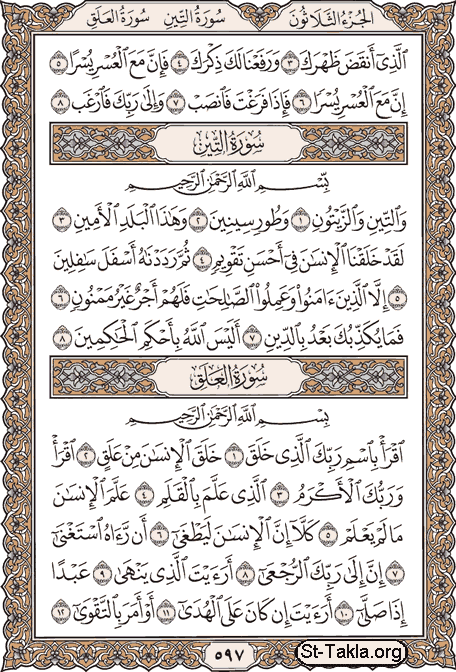 الجزء الثلاثون سورة التين سورة العلق
ٱلَّذِىٓ أَنقَضَ ظَهْرَكَ ٣ وَرَفَعْنَا لَكَ ذِكْرَكَ ٤ فَإِنَّ مَعَ ٱلْعُسْرِ يُسْرًا ٥
إِنَّ مَعَ ٱلْعُسْرِ يُسْرًا ٦ فَإِذَا فَرَغْتَ فَٱنصَبْ ٧ وَإِلَىٰ رَبِّكَ فَٱرْغَب ٨
سُورَةُ التِّينِ
بِسْمِ ٱللَّهِ ٱلرَّحْمَـٰنِ ٱلرَّحِيمِ
وَٱلتِّينِ وَٱلزَّيْتُونِ ١ وَطُورِ سِينِينَ ٢ وَهَـٰذَا ٱلْبَلَدِ ٱلْأَمِينِ ٣
لَقَدْ خَلَقْنَا ٱلْإِنسَـٰنَ فِىٓ أَحْسَنِ تَقْوِيمٍ ٤ ثُمَّ رَدَدْنَـٰهُ أَسْفَلَ سَـٰفِلِينَ
٥ إِلَّا ٱلَّذِينَ ءَامَنُوا۟ وَعَمِلُوا۟ ٱلصَّـٰلِحَـٰتِ فَلَهُمْ أَجْرٌ غَيْرُ مَمْنُونٍ ٦
فَمَا يُكَذِّبُكَ بَعْدُ بِٱلدِّينِ ٧ أَلَيْسَ ٱللَّهُ بِأَحْكَمِ ٱلْحَـٰكِمِينَ ٨
سُورَةُ العَلَقِ
بِسْمِ ٱللَّهِ ٱلرَّحْمَـٰنِ ٱلرَّحِيمِ
ٱقْرَأْ بِٱسْمِ رَبِّكَ ٱلَّذِى خَلَقَ ١ خَلَقَ ٱلْإِنسَـٰنَ مِنْ عَلَقٍ ٢ ٱقْرَأْ
وَرَبُّكَ ٱلْأَكْرَمُ ٣ ٱلَّذِى عَلَّمَ بِٱلْقَلَمِ ٤ عَلَّمَ ٱلْإِنسَـٰنَ
مَا لَمْ يَعْلَمْ ٥ كَلَّآ إِنَّ ٱلْإِنسَـٰنَ لَيَطْغَىٰٓ ٦ أَن رَّءَاهُ ٱسْتَغْنَىٰٓ
٧ إِنَّ إِلَىٰ رَبِّكَ ٱلرُّجْعَىٰٓ ٨ أَرَءَيْتَ ٱلَّذِى يَنْهَىٰ ٩ عَبْدًا
إِذَا صَلَّىٰٓ ١٠ أَرَءَيْتَ إِن كَانَ عَلَى ٱلْهُدَىٰٓ ١١ أَوْ أَمَرَ بِٱلتَّقْوَىٰٓ ١٢
٥٩٧
St-Takla.org